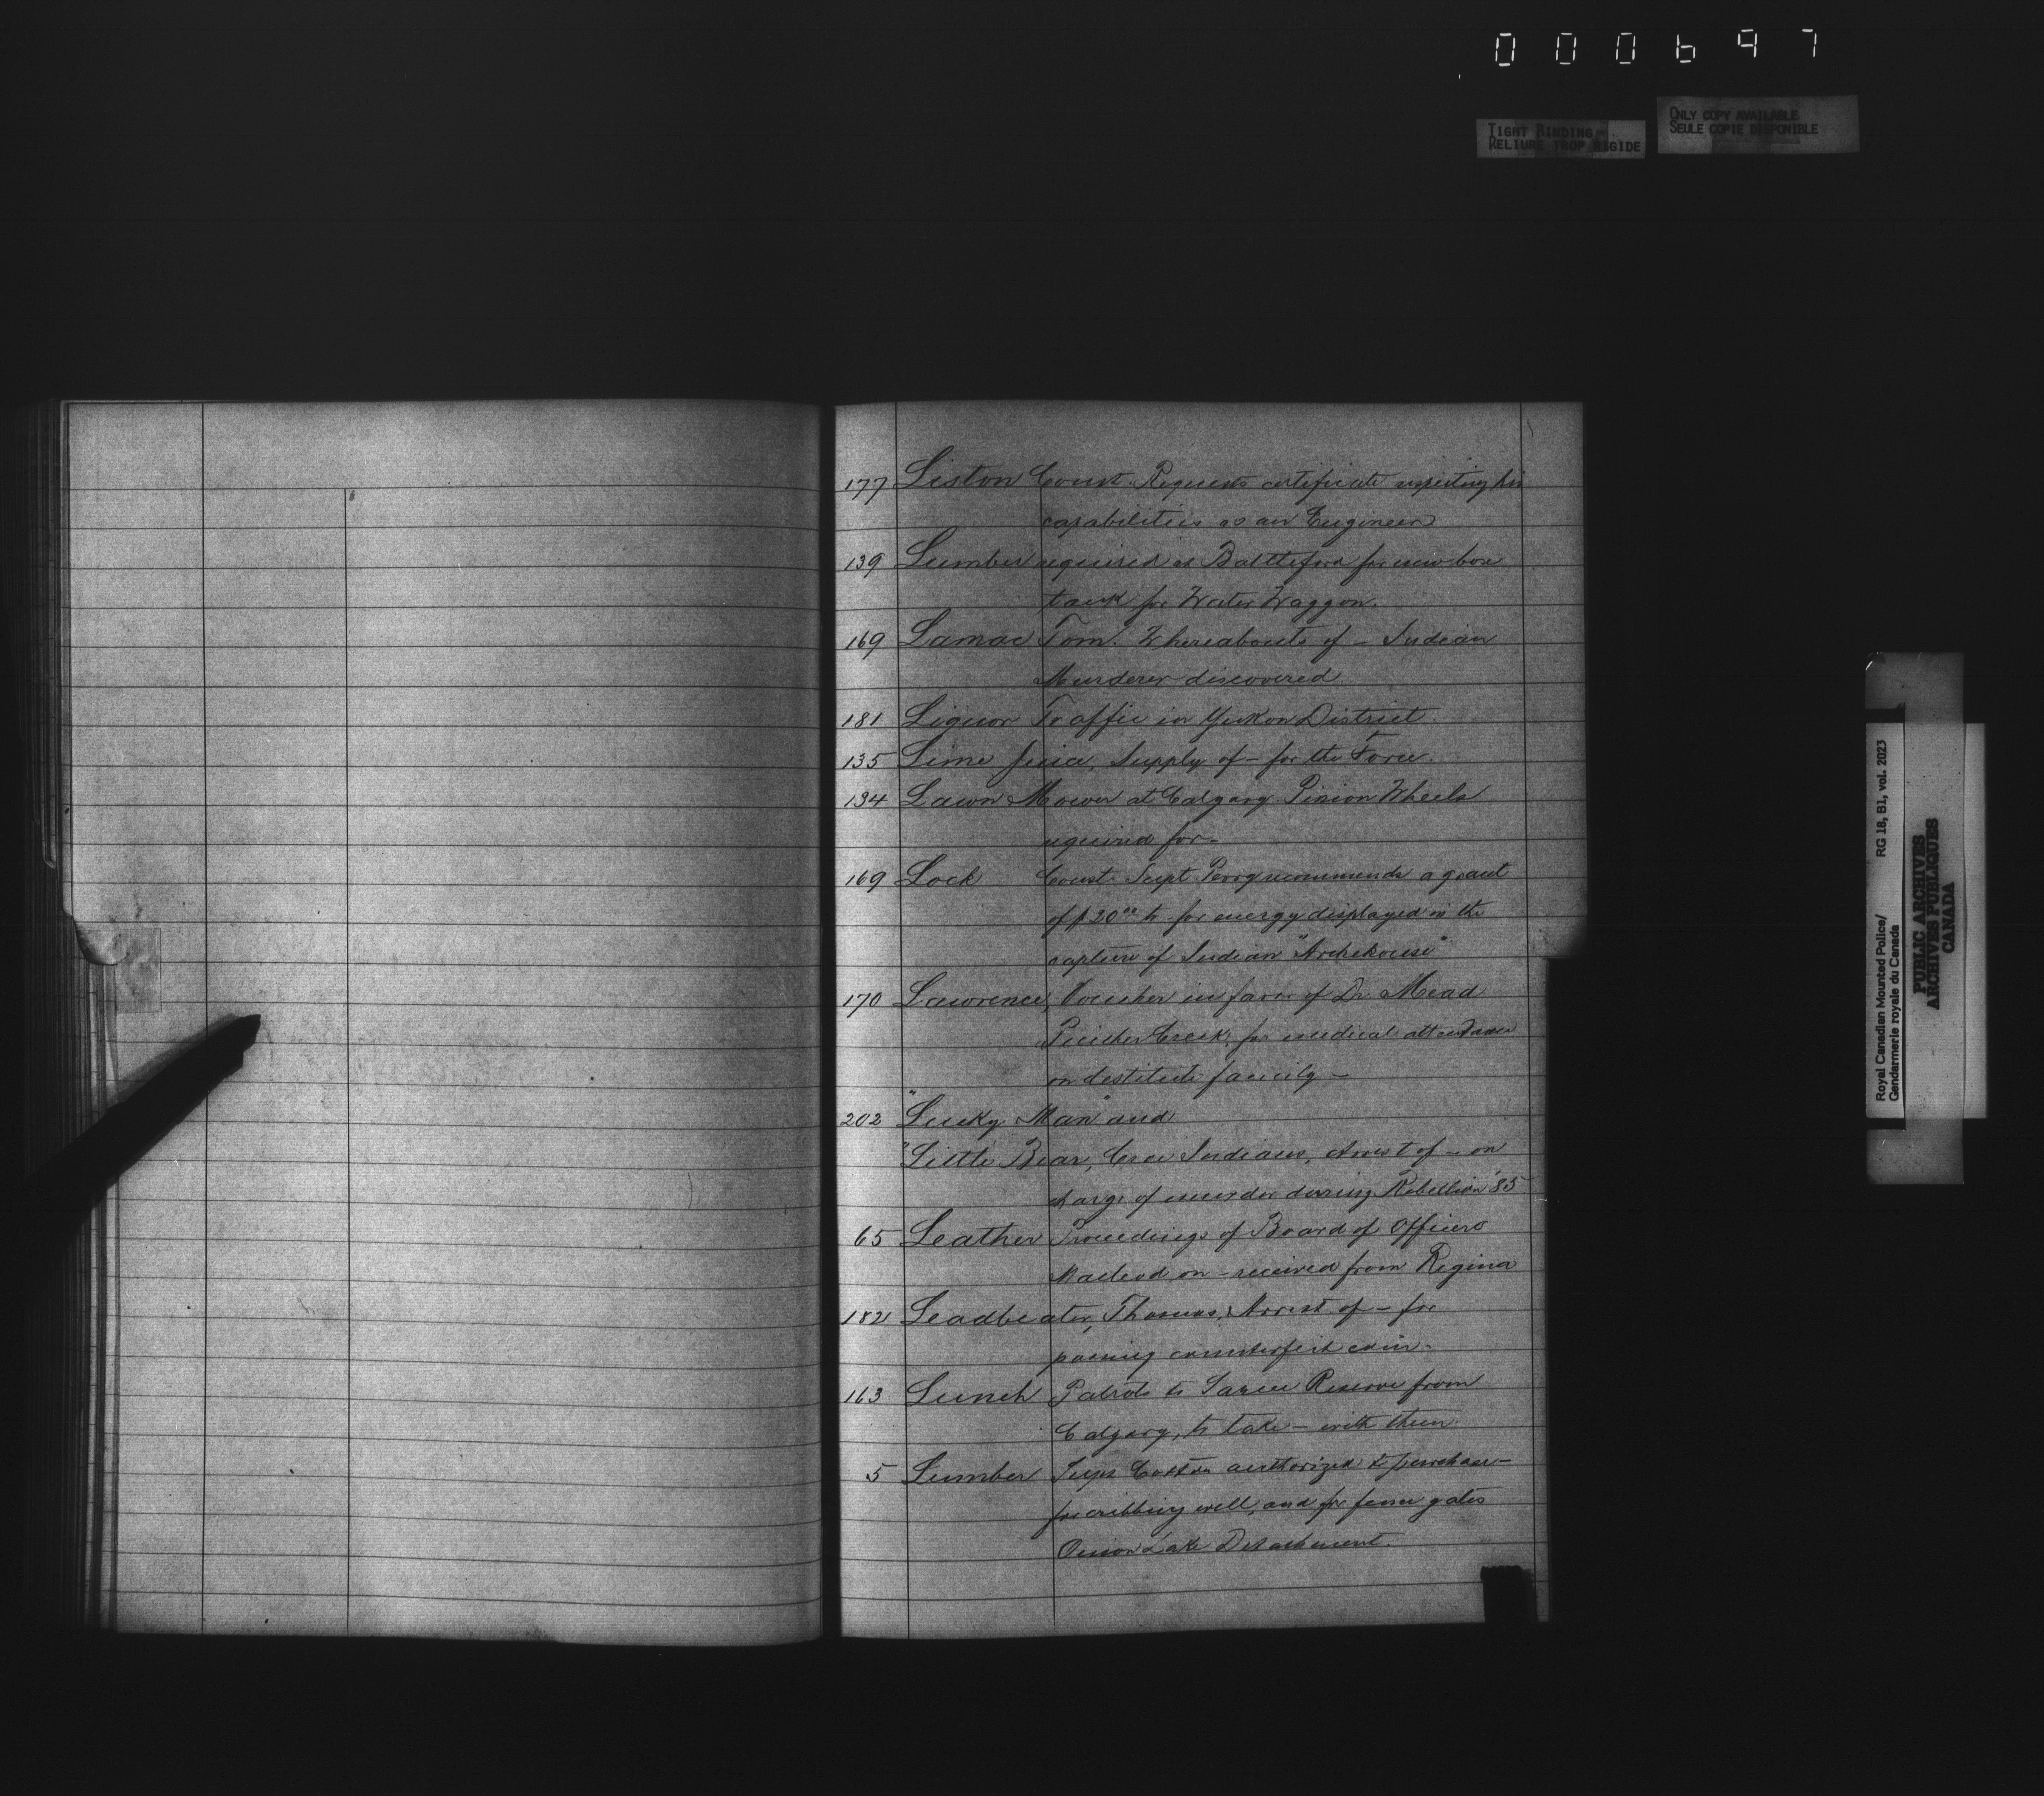 000697
TIGHT BINDING
RELIURE TROP RIGIDE
ONLY COPY AVAILABLE
SEULE COPIE DISPONIBLE
177 Liston Const. Requests certificate respecting his
capabilities as an Engineer
139 Lumber required at Battleford for new box
tank for Water Waggon.
169 Lamac Tom. Whereabouts of - Indian
Murderer discovered
181 Liquor Traffic in Yukon District.
135 Lime Juice, Supply of - for the Force.
134 Lawn Mower at Calgary Pinion Wheels
required for -
169 Lock Const. Supt. Perry recommends a grant
of $20.00 to - for energy displayed in the
capture of Indian
170 Lawrence, Voucher in favor of Dr. Mead
Pincher Creek, for medical attendance
on destitute family -
202 "Lucky Man" and
"Little Bear, Cree Indians, Arrest of - on
charge of murder during Rebellion '85
65 Leather Proceedings of Board of Officers
Macleod on - received from Regina
182 Leadbeater, Thomas, Arrest of - for
passing counterfeit coin.
163 Lunch Patrols to Sarcee Reserve from
Calgary, to take - with them.
5 Lumber Supt Cotton authorized to purchase -
for cribbing well, and for fence gates
Onion Lake Detachment.
Royal Canadian Mounted Police/ RG 18, B1, vol. 2023
Gendarmerie royale du Canada
PUBLIC ARCHIVES
ARCHIVES PUBLIQUES
CANADA